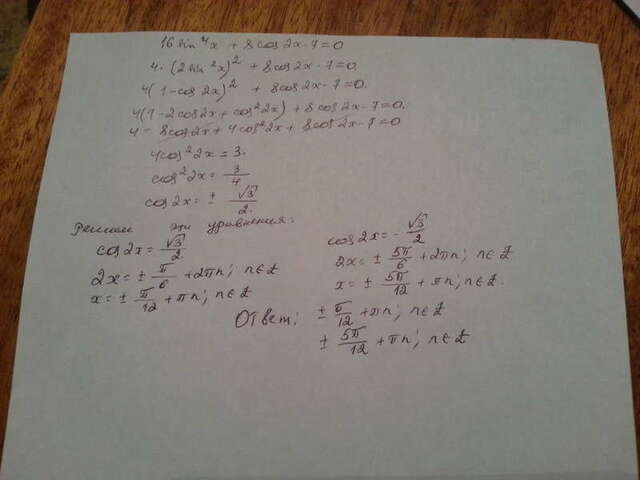 16 sin⁴x + 8cos2x-7=0
4·(2sin²x)² + 8cos2x-7=0.
4(1-cos2x)² + 8cos2x-7=0.
4(1-2cos2x+cos²2x) + 8cos2x-7=0.
4-8cos2x+4cos²2x+8cos2x-7=0
4cos²2x=3.
cos²2x= 3/4
cos2x= ± √3/2.
Решим эти уравнения:
cos2x= √3/2.
2x=± π/6 +2πn; n∈Z
x=± π/12 +πn; n∈Z
cos2x=- √3/2
2x=± 5π/6 +2πn; n∈Z
x=± 5π/12 +πn; n∈Z.
Ответ: ± π/12 +πn; n∈Z
± 5π/12 +πn; n∈Z